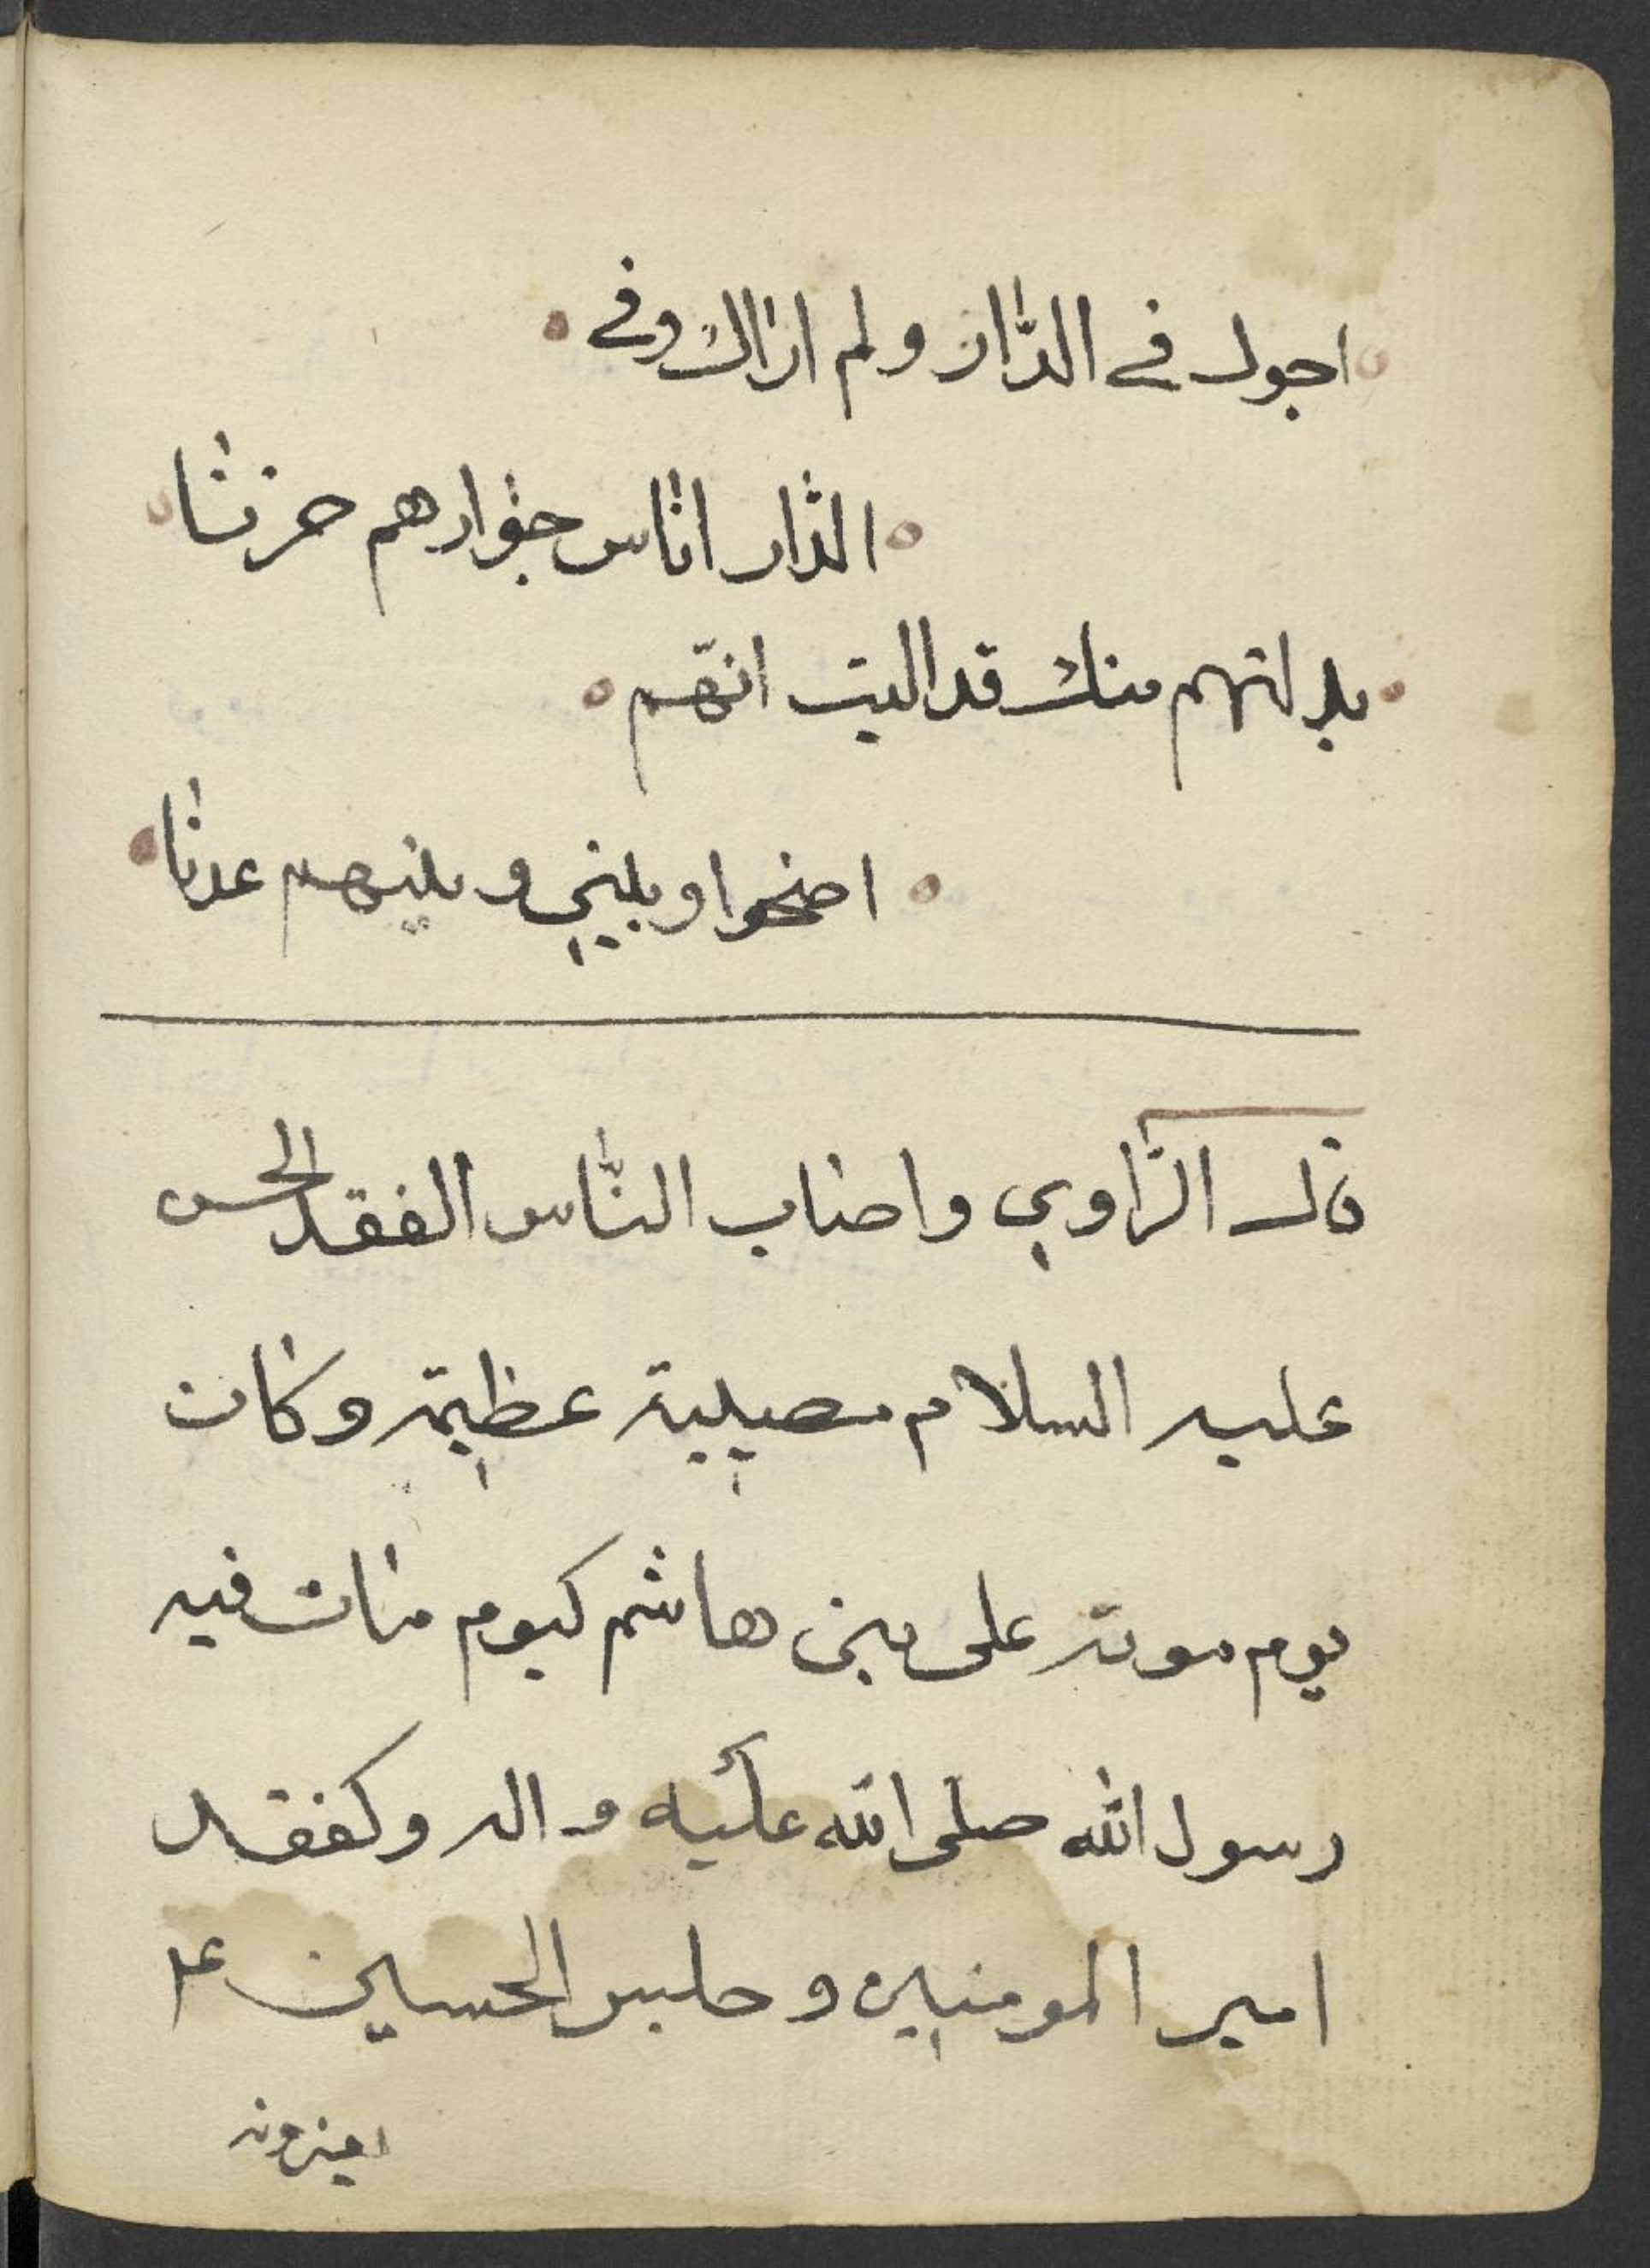 اجول في الدار ولم اراك وفي
الدار اناس جوارهم حزنا
بدلتهم منك قد اليت انهم
اضحوا وبيني وبينهم عدنا
قال الراوي واصاب الناس الفقد الحسن
عليه السلام مصيبة عظيمة وكان
يوم موته على بني هاشم كيوم مات فيه
رسول الله صلى الله عليه واله وكفقد
امير المومنين وجلس الحسين ع م